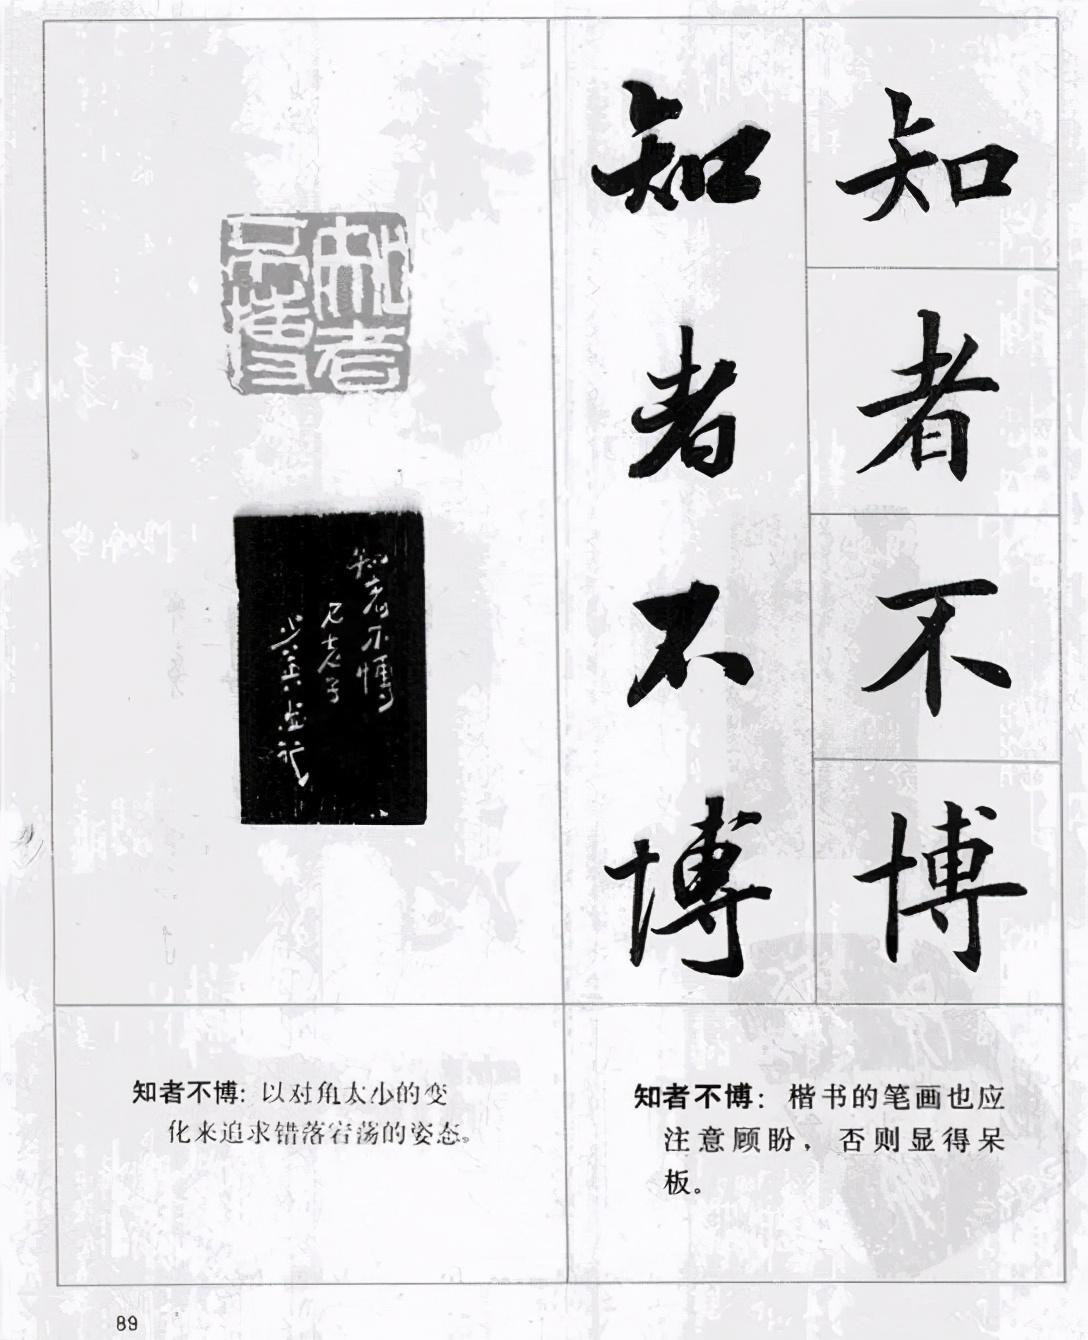 知者不博
知者不博
知者
不博
知者不博
老子
知者不博：以对角大小的变
化来追求错落宕荡的姿态。
知者不博：楷书的笔画也应
注意顾盼，否则显得呆
板。
89